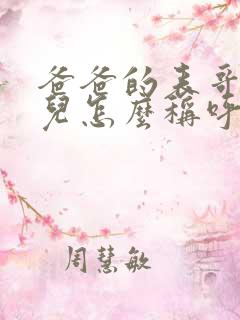 爸爸的表哥
兒怎麼稱呼
周慧敏